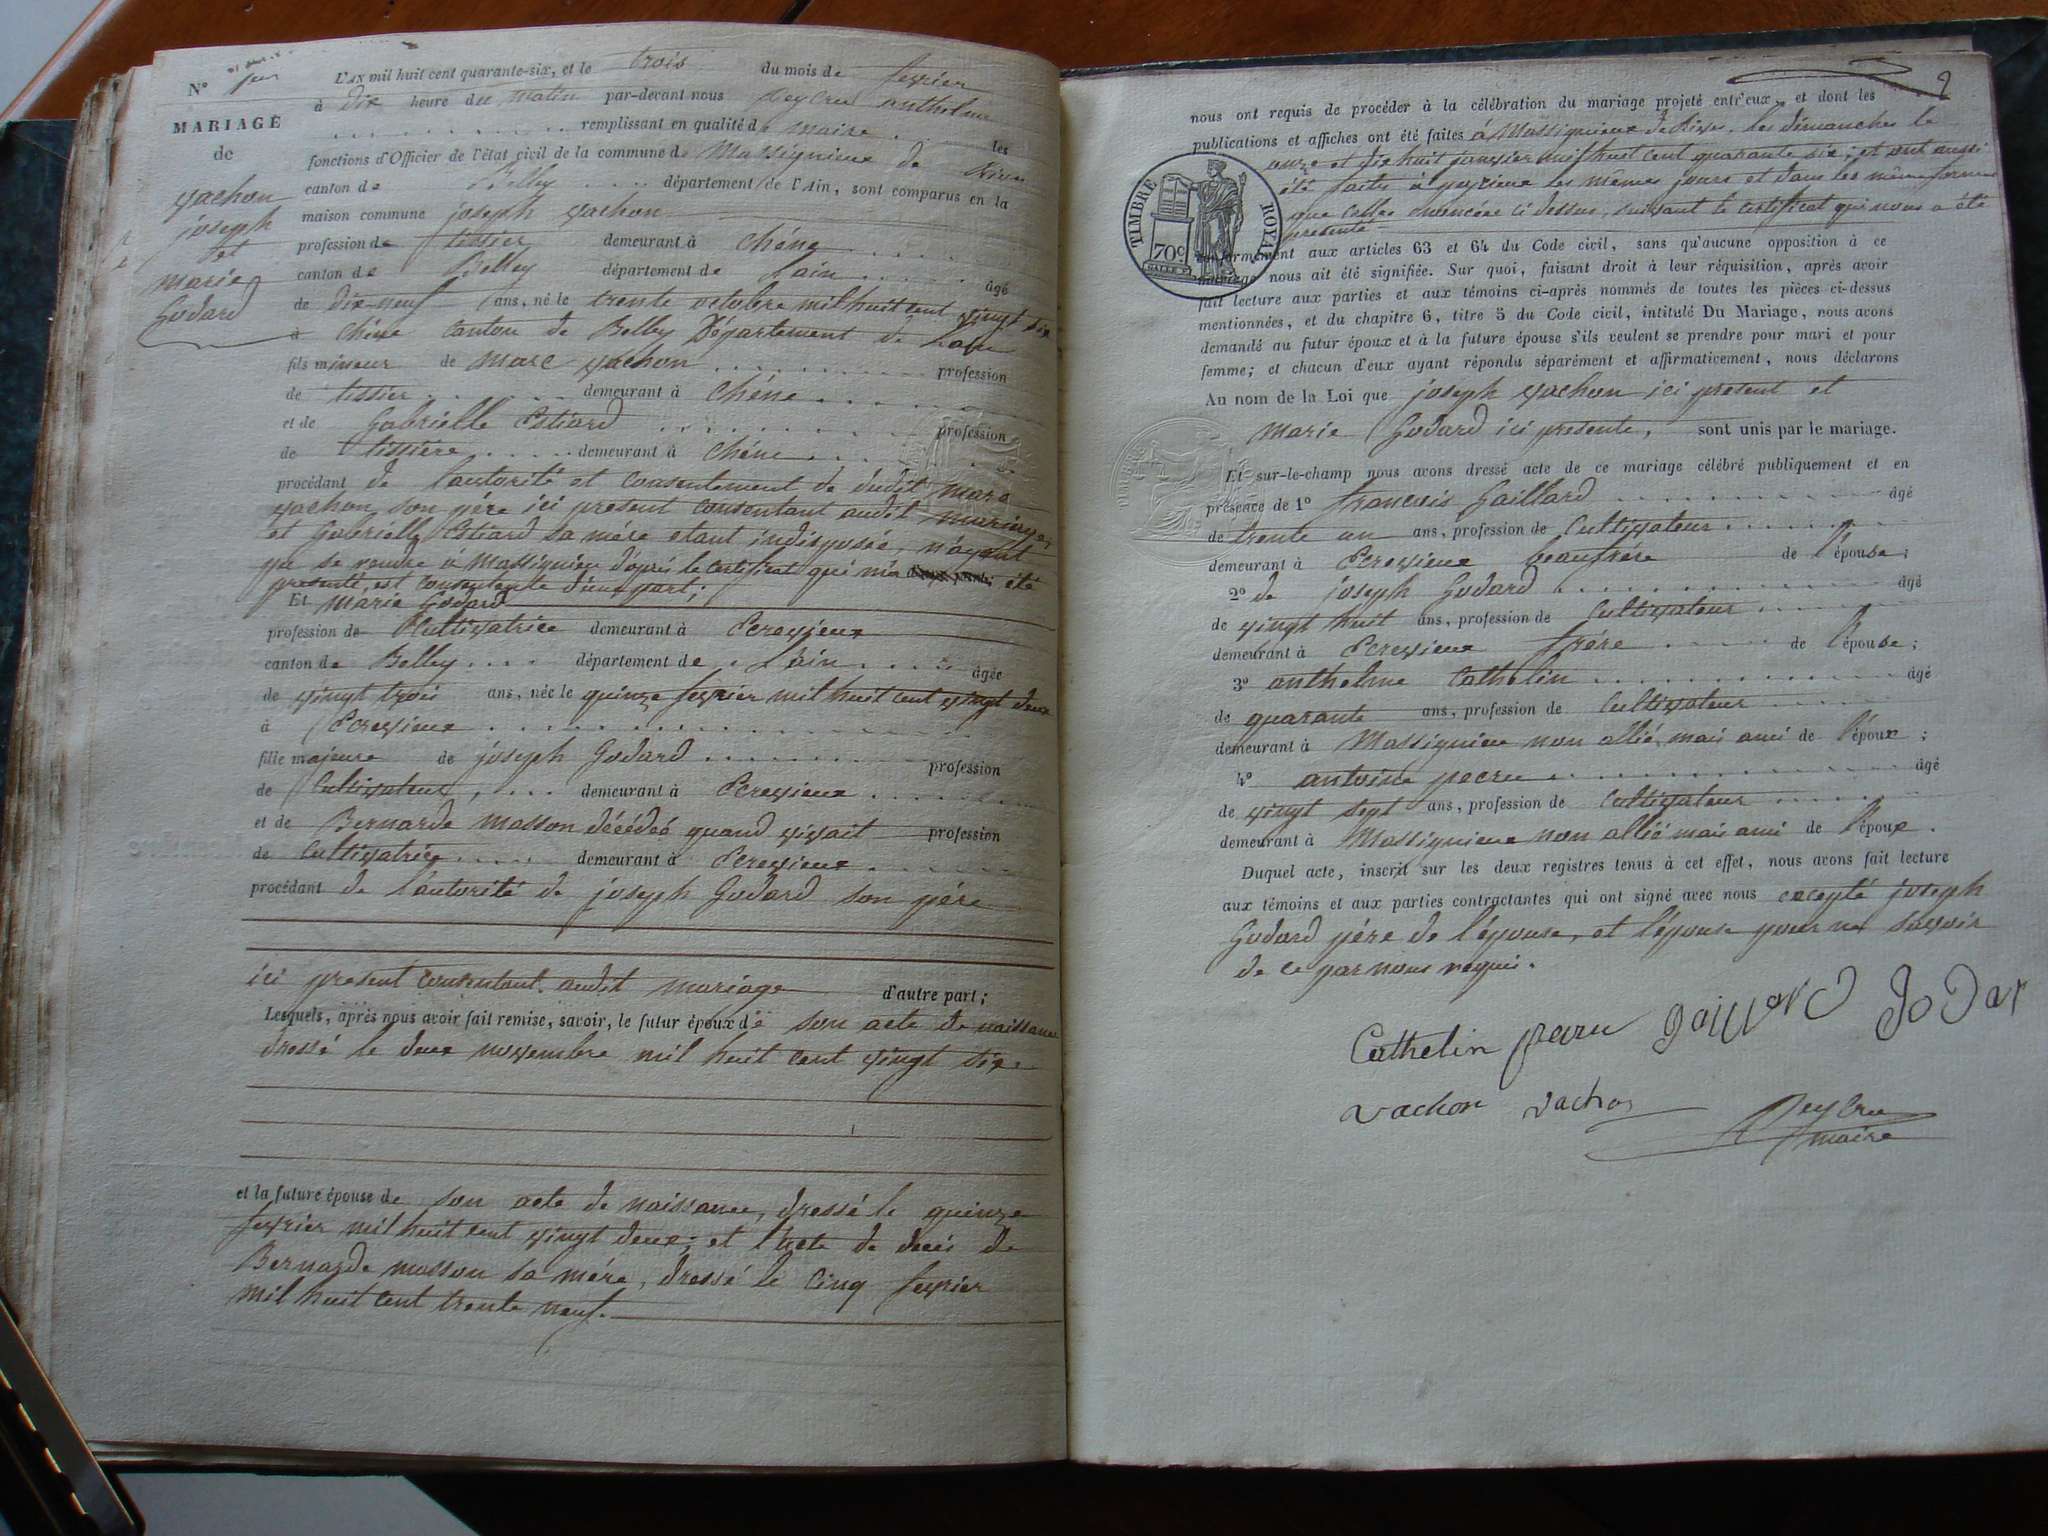 N° un
MARIAGE
de
vachon
joseph
et
marie
Godard
L'AN mil huit cent quarante-six, et le trois du mois de fevrier
à dix heure du matin par-devant nous peycru anthelme
remplissant en qualité de maire les
fonctions d'Officier de l'état civil de la commune de Massignieu de Rives
canton de Belley département de l'Ain, sont comparus en la
maison commune joseph vachon
profession de tissier demeurant à Chéne
canton de Belley département de l'ain âgé
de dix-neuf ans, né le trente octobre mil huit cent vingt six
à chéne Canton de Belley Département de l'ain
fils mineur de marc vachon profession
de tissier demeurant à Chéne
et de Gabrielle Estiard profession
de tissiére demeurant à Chéne
procédant de l'autorité et consentement de dudit marc
vachon son pére ici present consentant audit mariage,
et Gabrielle Estiard sa mére etant indisposée, n'ayant
pu se rendre à Massignieu d'après le certificat qui m'a été
presenté est consentente d'une part;
Et marie Godard
profession de Cultivatrice demeurant à Cressieux
canton de Belley département de l'ain âgée
de vingt trois ans, née le quinze fevrier mil huit cent vingt deux
à Cressieux
fille majeure de joseph Godard profession
de Cultivateur, demeurant à Cressieux
et de Bernarde masson décédeé quand vivait profession
de Cultivatrice demeurant à Cressieux
procédant de l'autorité de joseph Godard son pére
ici present consentant audit mariage d'autre part;
Lesquels, après nous avoir fait remise, savoir, le futur époux de son acte de naissance
dressé le deux novembre mil huit cent vingt six
et la future épouse de son acte de naissance, dressé le quinze
fevrier mil huit cent vingt deux; et l'acte de decés de
Bernarde masson sa mére, dressé le Cinq fevrier
mil huit cent trente neuf.
2
nous ont requis de procéder à la célébration du mariage projeté entr'eux, et dont les
publications et affiches ont été faites à Massignieux de Rives, les dimanches le
onze et dix huit janvier mil huit cent quarante six; et ont aussi
été faites à peyrieux les mêmes jours et dans les même formes
que celles enoncées ci dessus, suivant le certificat qui nous a été
presenté
TIMBRE ROYAL
70c
conformément aux articles 63 et 64 du Code civil, sans qu'aucune opposition à ce
mariage nous ait été signifiée. Sur quoi, faisant droit à leur réquisition, après avoir
fait lecture aux parties et aux témoins ci-après nommés de toutes les pièces ci-dessus
mentionnées, et du chapitre 6, titre 5 du Code civil, intitulé Du Mariage, nous avons
demandé au futur époux et à la future épouse s'ils veulent se prendre pour mari et pour
femme; et chacun d'eux ayant répondu séparément et affirmativement, nous déclarons
Au nom de la Loi que joseph vachon ici present et
marie Godard ici presente, sont unis par le mariage.
Et sur-le-champ nous avons dressé acte de ce mariage célébré publiquement et en
présence de 1° francois Gaillard âgé
de trente un ans, profession de Cultivateur
demeurant à Cressieux beaufrere de l'épouse;
2° de joseph Godard âgé
de vingt huit ans, profession de Cultivateur
demeurant à Cressieux frére de l'épouse;
3° anthelme Cathelin âgé
de quarante ans, profession de Cultivateur
demeurant à Massignieu non allié mais ami de l'époux;
4° antoine pecru âgé
de vingt sept ans, profession de Cultivateur
demeurant à Massignieux non allié mais ami de l'époux.
Duquel acte, inscrit sur les deux registres tenus à cet effet, nous avons fait lecture
aux témoins et aux parties contractantes qui ont signé avec nous excepté joseph
Godard pére de l'épouse, et l'épouse pour ne savoir
de ce par nous requis.
Cathelin pecru gaillard Jodar
vachon vachon peycru
maire